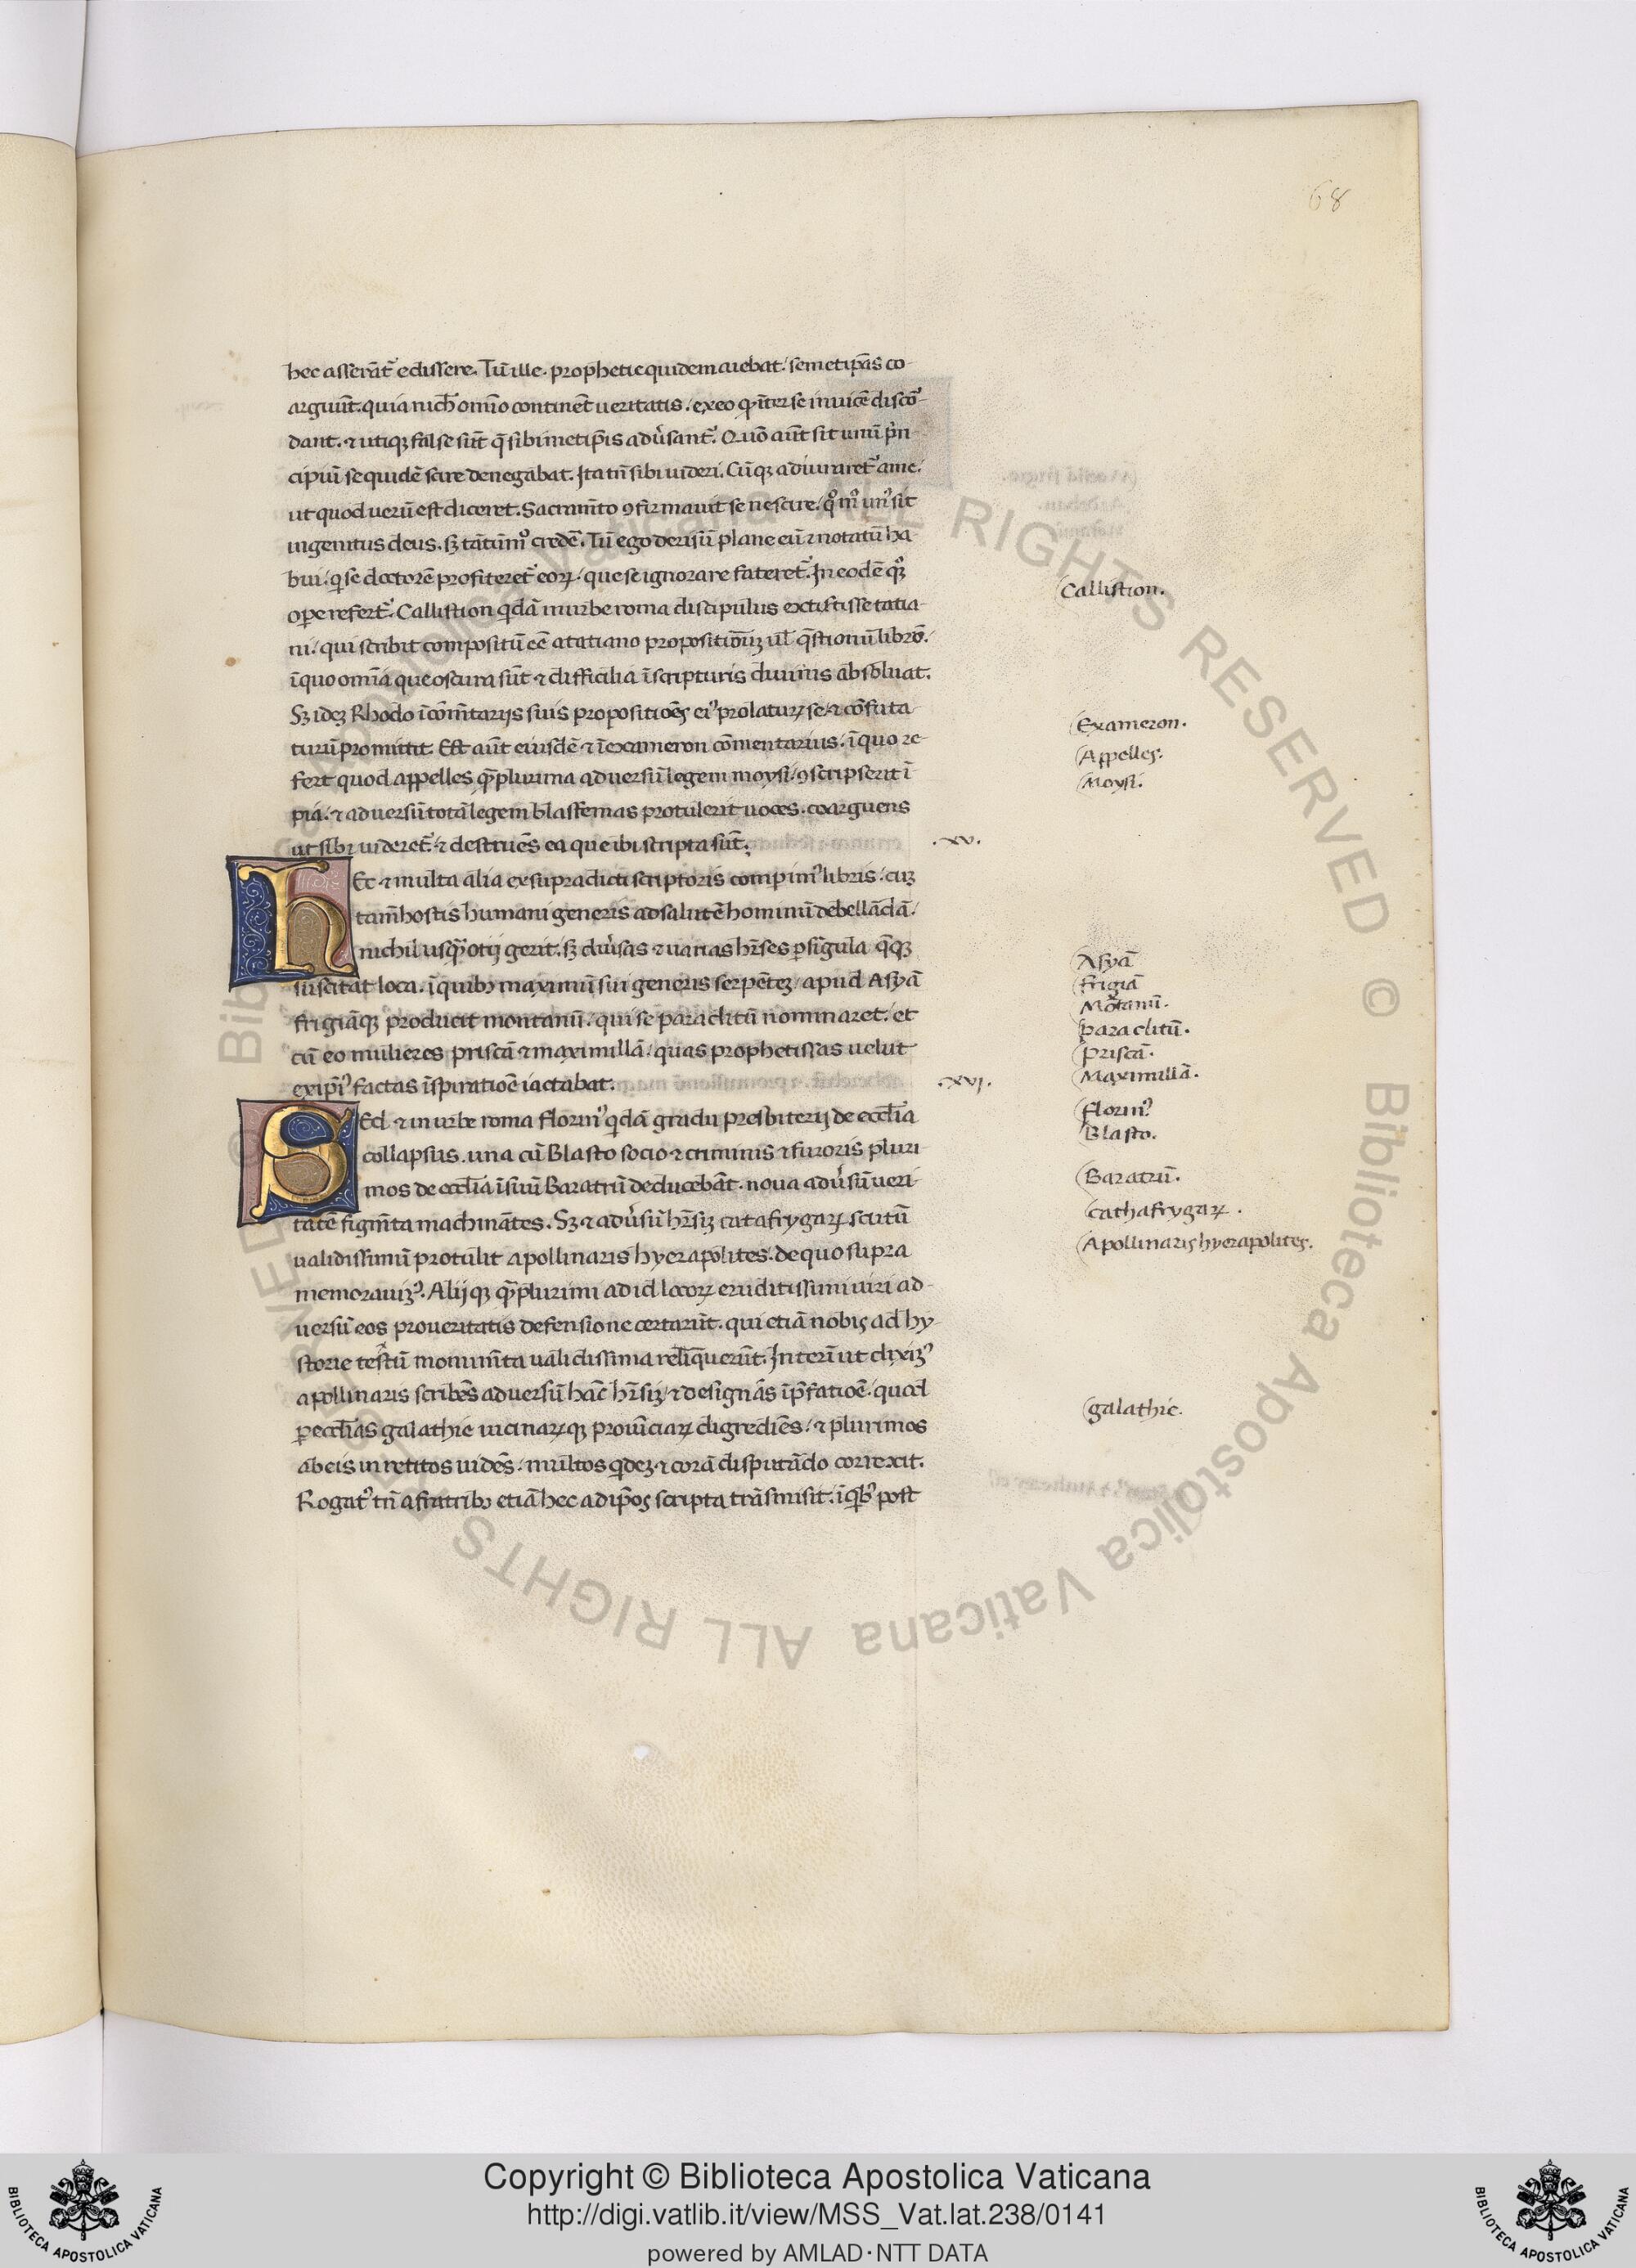 68
hec asserāt᷑ edissere. Tū ille. prophetie quidem aiebat. semetip̄as co-
arguūt. quia nich̄ om̄o continēt ueritatis. ex eo ꝙ īter se inuicē discō-
dant. ⁊ utiqꝫ false sūt q̄ sibimetip̄is adūsant᷑. Quō aūt sit unū pͥn-
cipiū se quidē scire denegabat. Ita tn̄ sibi uideri. Cūqꝫ adiuraret᷑ a me.
ut quod uerū est diceret. Sacram̄to ꝯfirmauit se nescire. qͦmͦ unꝰ sit
ingenitus deus. sꝫ tātūmͦ credē. Tū ego derisū plane eū ⁊ notatū ha-
bui. q se doctorē profiteret᷑ eoꝝ. que se ignorare fateret᷑. In eodē qͦꝫ
oꝑe refert᷑. Callistion qdā in urbe roma discipulus extitisse tatia-
ni. qui scribit compositū eē a tatiano propositionū ul̄ q̄stionū librō.
ī quo omīa que oscura sūt ⁊ difficilia ī scripturis diuinis absoluat.
Sꝫ ideꝫ Rhodo ī cōm̄tarijs suis propositiōes eiꝰ prolaturꝝ se ⁊ cōfuta-
turū promittit. Est aūt eiusdē ⁊ ī exameron cōmentarius. ī quo re-
fert quod appelles q̄plurima aduersū legem moysi ꝯscripserit ī
pia. ⁊ aduersū totā legem blasfemas protulerit uoces. coarguens
ut sibi uideret᷑. ⁊ destruēs ea que ibi scripta sūt.
.xv.
hEc ⁊ multa alia ex supradicti scriptoris compimꝰ libris. cuꝫ
tam̄ hostis humani generis ad salutē hominū debellādā.
nichil usq̄ otij gerit. sꝫ dūsas ⁊ uarias hr̄ses ꝑ sīgula q̄qꝫ
suscitat loca. ī quibꝫ maximū sui generis serpēteꝫ apud Asyā
frigiāqꝫ producit montanū. qui se paraclitū nominaret. et
cū eo mulieres priscā ⁊ maximillā. quas prophetissas uelut
ex ip̄iꝰ factas īspiratioē iactabat.
.xvj.
SEd ⁊ in urbe roma florinꝰ qdā gradu presbiterij de eccl̄ia
collapsus. una cū Blasto socio ⁊ criminis ⁊ furoris pluri-
mos de eccl̄ia ī suū Baratrū deducebāt. noua adūsū ueri-
tatē figm̄ta machinātes. Sꝫ ⁊ adūsū hr̄siꝫ catafrygaꝝ scutū
ualidissimū protulit apollinaris hyerapolites. de quo supra
memorauiꝫꝰ. Alijqꝫ q̄plurimi ad id locoꝝ eruditissimi uiri ad-
uersū eos pro ueritatis defensione certarūt. qui etiā nobis ad hy-
storie testū monum̄ta ualidissima reliq̄uerūt. Interī ut dixiꝫꝰ
apollinaris scribēs aduersū hāc hr̄siꝫ ⁊ designās ī p̄fatioē. quod
ꝑ eccl̄ias galathie uicinaꝝqꝫ prouīciaꝝ digrediēs. ⁊ plurimos
ab eis irretitos uidēs. multos qdeꝫ ⁊ corā disputādo correxit.
Rogatꝰ tn̄ a fratribꝫ etiā hec ad ip̄os scripta trāsmisit. ī qbꝰ post
Callistion.
Exameron.
Appelles.
Moysi.
Asyā
frigiā
Mōtanū.
paraclitū.
Priscā.
Maximillā.
florinꝰ
Blasto.
Baratrū.
cathafrygaꝝ.
Apollinaris hyerapolites.
galathie.
© Biblioteca Apostolica Vaticana ALL RIGHTS RESERVED © Biblioteca Apostolica Vaticana ALL RIGHTS RESERVED
Copyright © Biblioteca Apostolica Vaticana
http://digi.vatlib.it/view/MSS_Vat.lat.238/0141
powered by AMLAD·NTT DATA
BIBLIOTECA APOSTOLICA VATICANA
BIBLIOTECA APOSTOLICA VATICANA